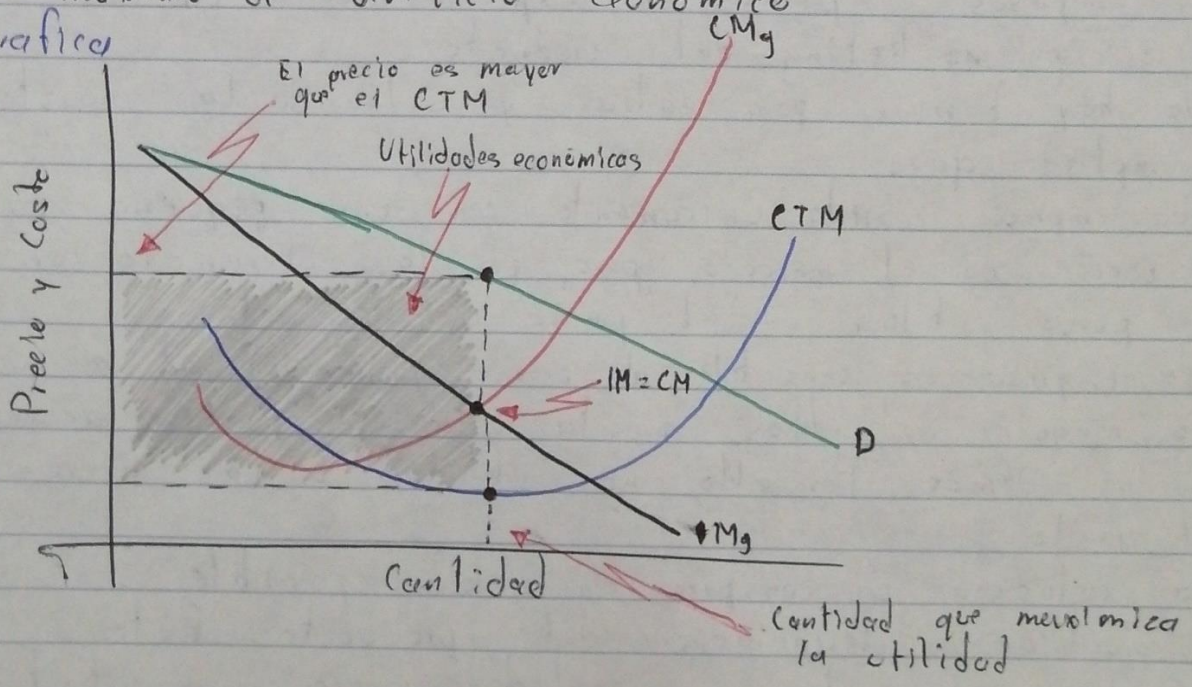 Economico
afica
CMg
El precio es mayor
que el CTM
Utilidades económicas
CTM
Precio y Coste
IM = CM
D
Mg
Cantidad
Cantidad que
la utilidad